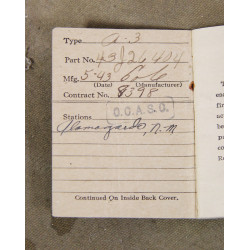 Type A-3
Part No. 43J26404
Mfg. 5-43
(Date) (Manufacturer)
Contract No. 8398
O.C.A.S.O.
Stations
Alamogordo, N-M
Continued On Inside Back Cover.